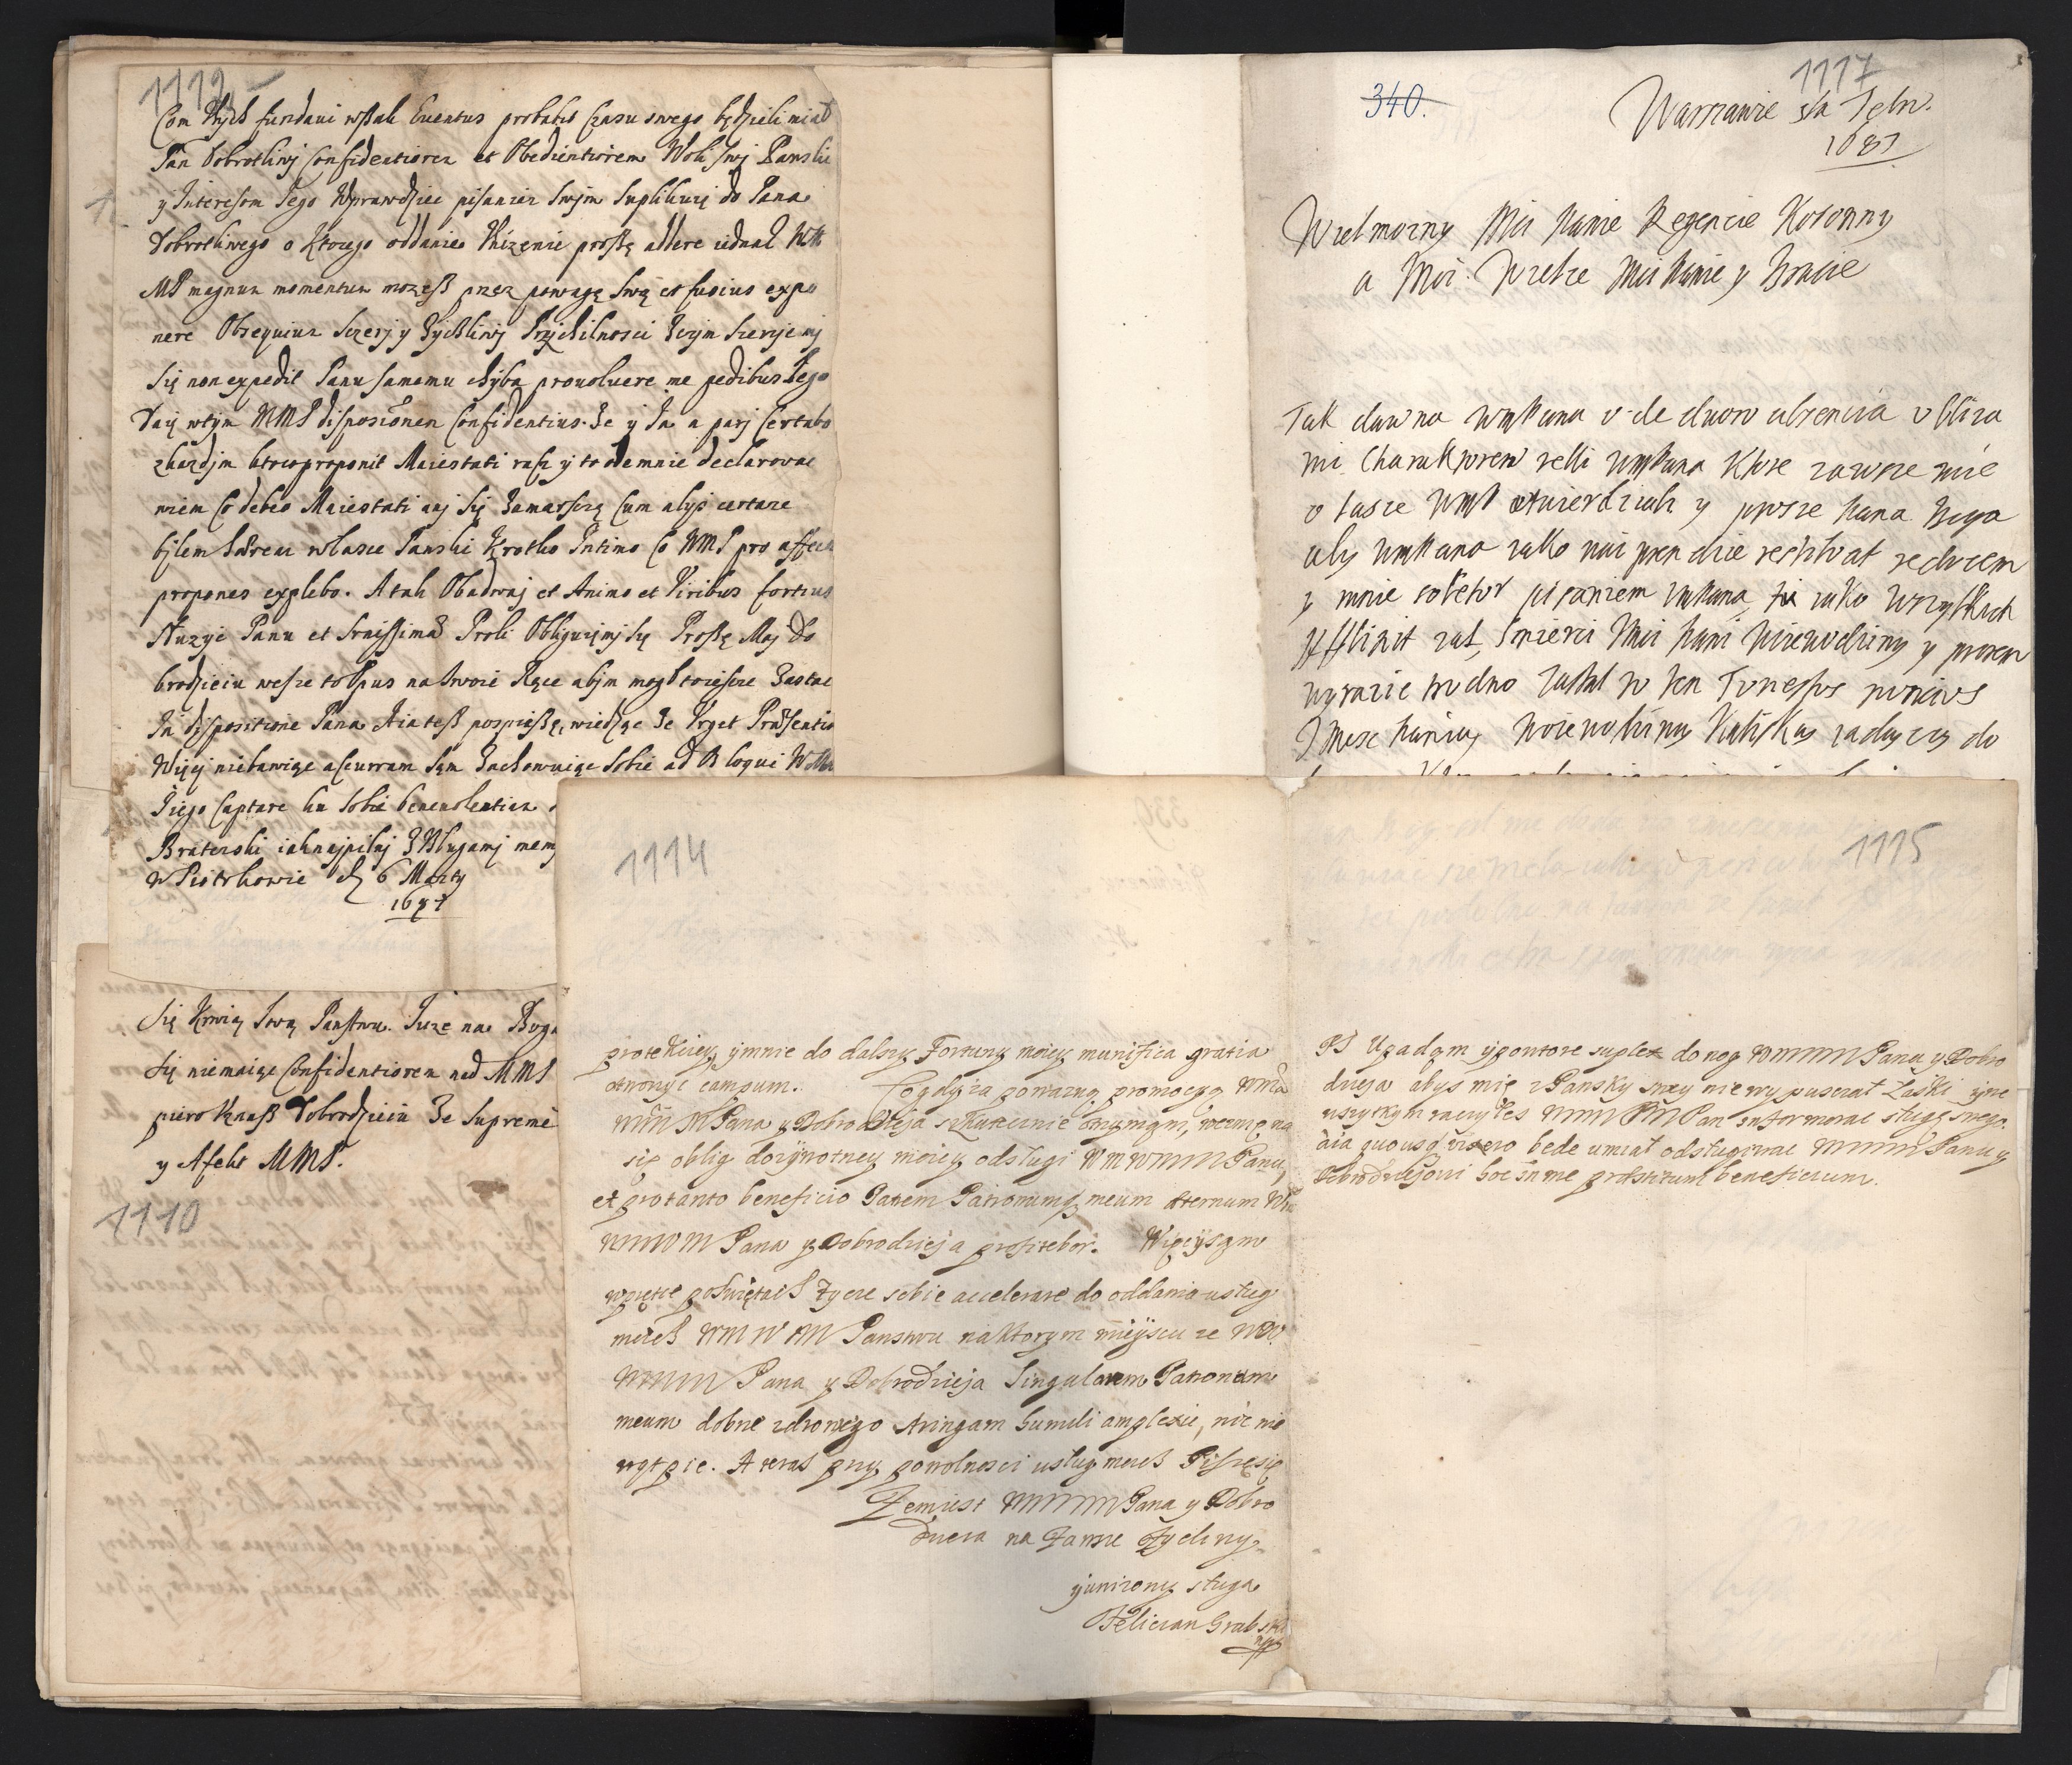 1112
Com Wych fundaui wszak Euentus probabit Czasu swego będzieli miał
Pan Dobrotliwy Confidentiorem et Obedientiorem Woli Swy Panskie
y Interesom Jego Wprawdziec pisaniem Swym Suplikuię do Pana
Dobrotliwego o Ktorego oddanie Vnizenie proszę addere iednak WM
MP magnum momentum mozesz przez powagę Swą et fusius expo
nere Obsequium Sczery y Zyczliwy Przychilnosci
Się non expedit Panu samemu chyba prouoluere me pedibus Jego
Daię wtym WMP disposionem Confidentius. Ze y Ja a pari Certabo
zkazdym ktoreproponit Maiestati rase y to odemnie declarowac
wiem Co debeo Maiestati any Się Zamarsczą Cum alijs certare
bylem wlasce Panski Krotko Intimo Co WMP pro affectu
propones explebo. A tak Obadway et Animo et Viribus fortius
Sluzyc Panu et Srnissimae Proli Obliguięmy Się Proszę Moy Do
brodzieiu wesze tolspus na twoie Ręce abym mogl toiescze Zastac
In dispositione Pana Aia tesz pospieszę, wiedząc Ze Vrget Praesentia
Więcy niebawiąc ascurram Sam Zachowuiąc Sobie ad B loqui WMM
Jiego Captare ku Sobie beneuolentiam
Braterski iaknaypilny Z Vslugamy memy
w Piotrkowie d 6 Marty
1687
Się Krwią Swą Panstwu. Jusz na Boga
Się niemaiąc Confidentiorem nad MMP
piero Knasz Dobrodzieiu Ze Supreme
y Afekt MMP.
1110
340.
1117
Warszawie 8/a Febr.
1687
Wielmozny Mci Panie Regencie Koronny
a Moi Wielce Mci Panie y Bracie
Tak dawna WmPana v de dworu absencia v bliza
mi Charakterem relli WmPana Ktore zawsze mie
o łasce WmP otwierdziały y prosze Pana Boga
aby WmPana iako nai pren dzie restituat sedecem
y mnie sobetur pisaniem VmPana, ze iako Wszystkich
Afflixit zal, Smierci Jmci Pani Woiewodziny y prosem
wyrazic trudno zastal w ten Funestus nuncius
Jmosc Paniuy Woiewodziny Kaliskuy iaduczy do
1114
protekciey, ymnie do dalszy Fortuny moiey munifica gratia
otworzyc campum. To gdy za powazną promocyą WMa
WMM MPana y Dobrodzieja skutecznie otrzymam, wezmę na
się oblig dozywotney moiey odsługi WMWMMPanu,
et pro tanto beneficio Patrem Patronumq meum aeternum WM
WMWM Pana y Dobrodzieja profitebor. Więcyszym
wprętce poswiętach zycze sobie accelerare do oddania usług
moich WM W MM Panstwu naktorym mieyscu ze WW
WMMM Pana y Dobrodzieja Singularem Patronum
meum dobrze zdrowego Aringam humili amplexu, nic nie
wątpie. A teraz przy powolnosci usług moich Pisze się
Zemiest WMMMM Pana y Dobro
dzieia na Zawsze Zycliwy
yunizony sługa
Felician Grabski
mpp
1115
PS Upadam ypowtore suplex do nog WMMM Pana y Dobro
dzieja abys mię z Pansky swey nie wypuszczał Łaski, ywe
wszytkym raczyłes WMM MM Pan informowac sługę swego.
aia quousq vixero bede umiał odsługiwac WMMM Panu y
Dobrodziejowi hoc in me praestitum beneficium.